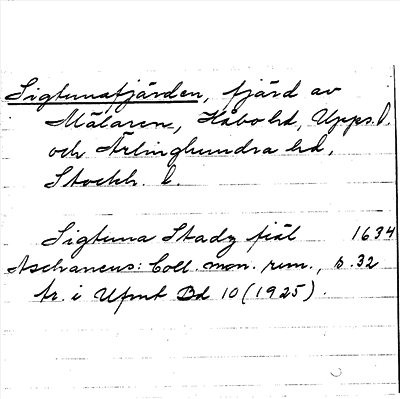 Sigtunafjärden, fjärd av
Mälaren, Håbo hd, Upps. l.
och Ärlinghundra hd,
Stockh. l.
Sigtuna Stadz fiäl 1634
Aschaneus: Coll. mon. run., s. 32
tr. i Ufmt Bd 10 (1925).